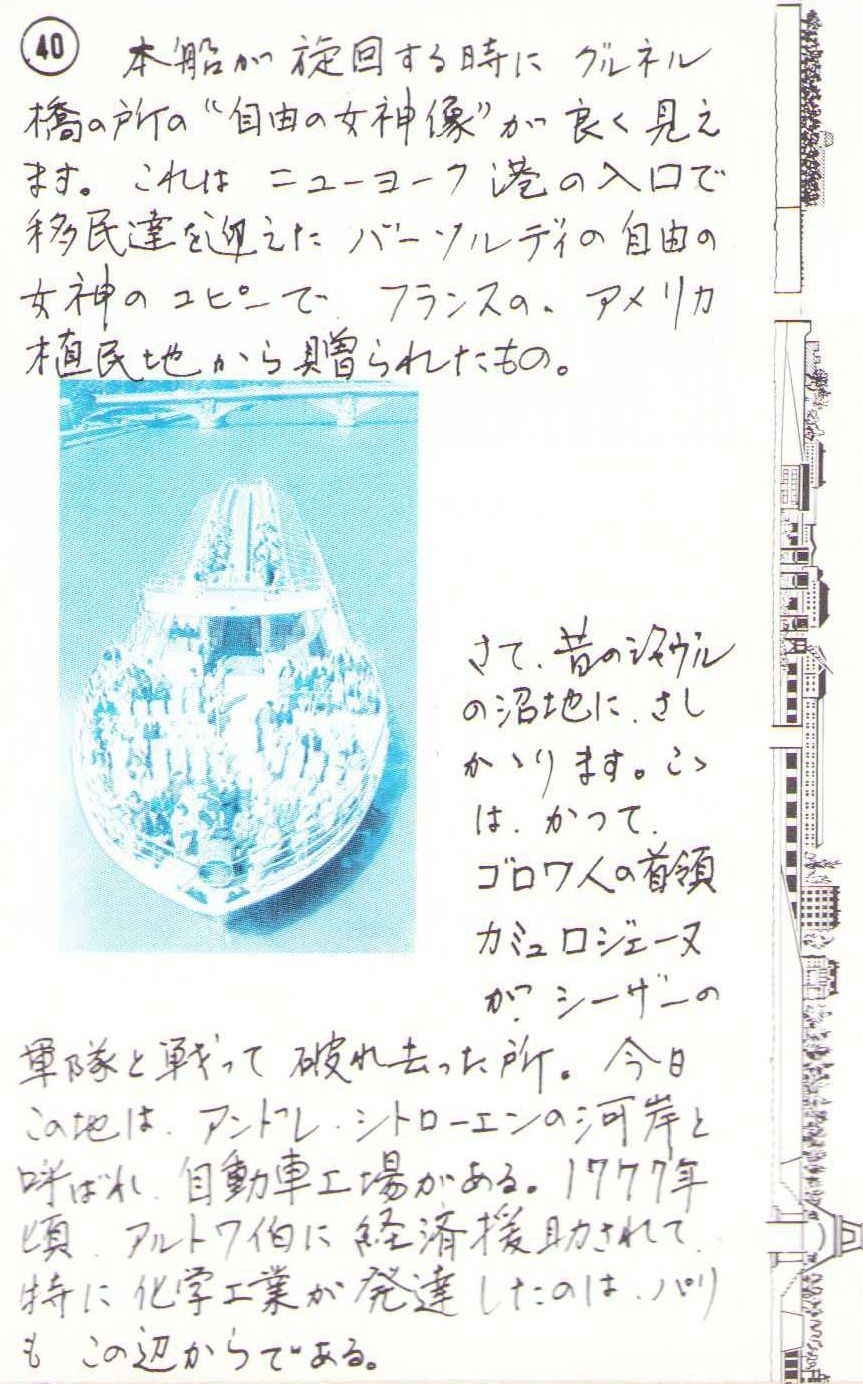 40
本船が旋回する時に グルネル
橋の所の“自由の女神像”が良く見え
ます。これは ニューヨーク港の入口で
移民達を迎えた バーソルディの自由の
女神のコピーで、フランスの、アメリカ
植民地から贈られたもの。
さて、昔のジャヴル
の沼地に、さし
かゝります。こゝ
は、かつて、
ゴロワ人の首領
カミュロジェーヌ
が、シーザーの
軍隊と戦って破れ去った所。今日
この地は、アンドレ・シトローエンの河岸と
呼ばれ、自動車工場がある。1777年
頃、アルトワ伯に経済援助されて、
特に化学工業が発達したのは、パリ
も この辺からである。